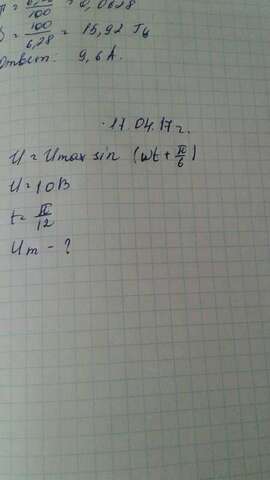 100 = 0,0628
= 100/6,28 = 15,92 Гц
Ответ: 9,6 А.
11.04.17 г.
U = Umax sin (ωt + π/6)
U = 10 В
t = π/12
Um - ?